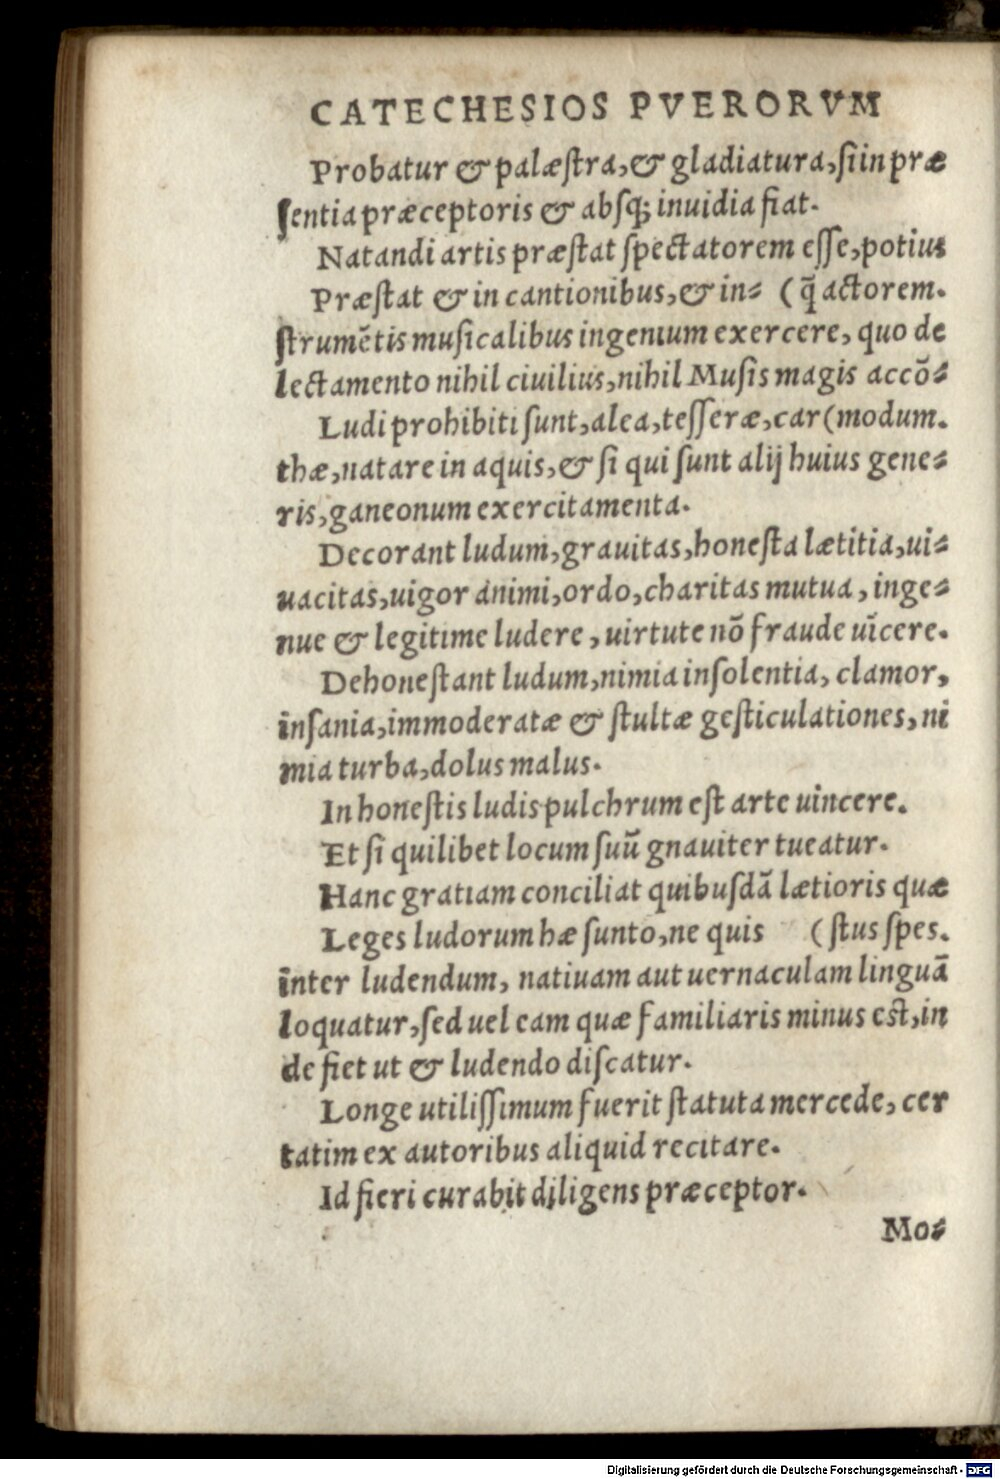 CATECHESIOS PVERORVM
Probatur & palæſtra, & gladiatura, ſi in præ
ſentia præceptoris & abſqꝫ inuidia fiat.
Natandi artis præſtat ſpectatorem eſſe, potius
Præſtat & in cantionibus, & in⸗ (q̃ actorem.
ſtrumẽtis muſicalibus ingenium exercere, quo de
lectamento nihil ciuilius, nihil Muſis magis accõ⸗
Ludi prohibiti ſunt, alea, teſſeræ, car (modum.
thæ, natare in aquis, & ſi qui ſunt alij huius gene⸗
ris, ganeonum exercitamenta.
Decorant ludum, grauitas, honeſta lætitia, ui⸗
uacitas, uigor animi, ordo, charitas mutua, inge⸗
nue & legitime ludere, uirtute nõ fraude uĩcere.
Dehoneſtant ludum, nimia inſolentia, clamor,
inſania, immoderatæ & ſtultæ geſticulationes, ni
mia turba, dolus malus.
In honeſtis ludis pulchrum eſt arte uincere.
Et ſi quilibet locum ſuũ gnauiter tueatur.
Hanc gratiam conciliat quibuſdã lætioris quæ
Leges ludorum hæ ſunto, ne quis (ſtus ſpes.
inter ludendum, natiuam aut uernaculam linguã
loquatur, ſed uel eam quæ familiaris minus eſt, in
de fiet ut & ludendo diſcatur.
Longe utiliſſimum fuerit ſtatuta mercede, cer
tatim ex autoribus aliquid recitare.
Id fieri curabit diligens præceptor.
Mo⸗
Digitalisierung gefördert durch die Deutsche Forschungsgemeinschaft - DFG